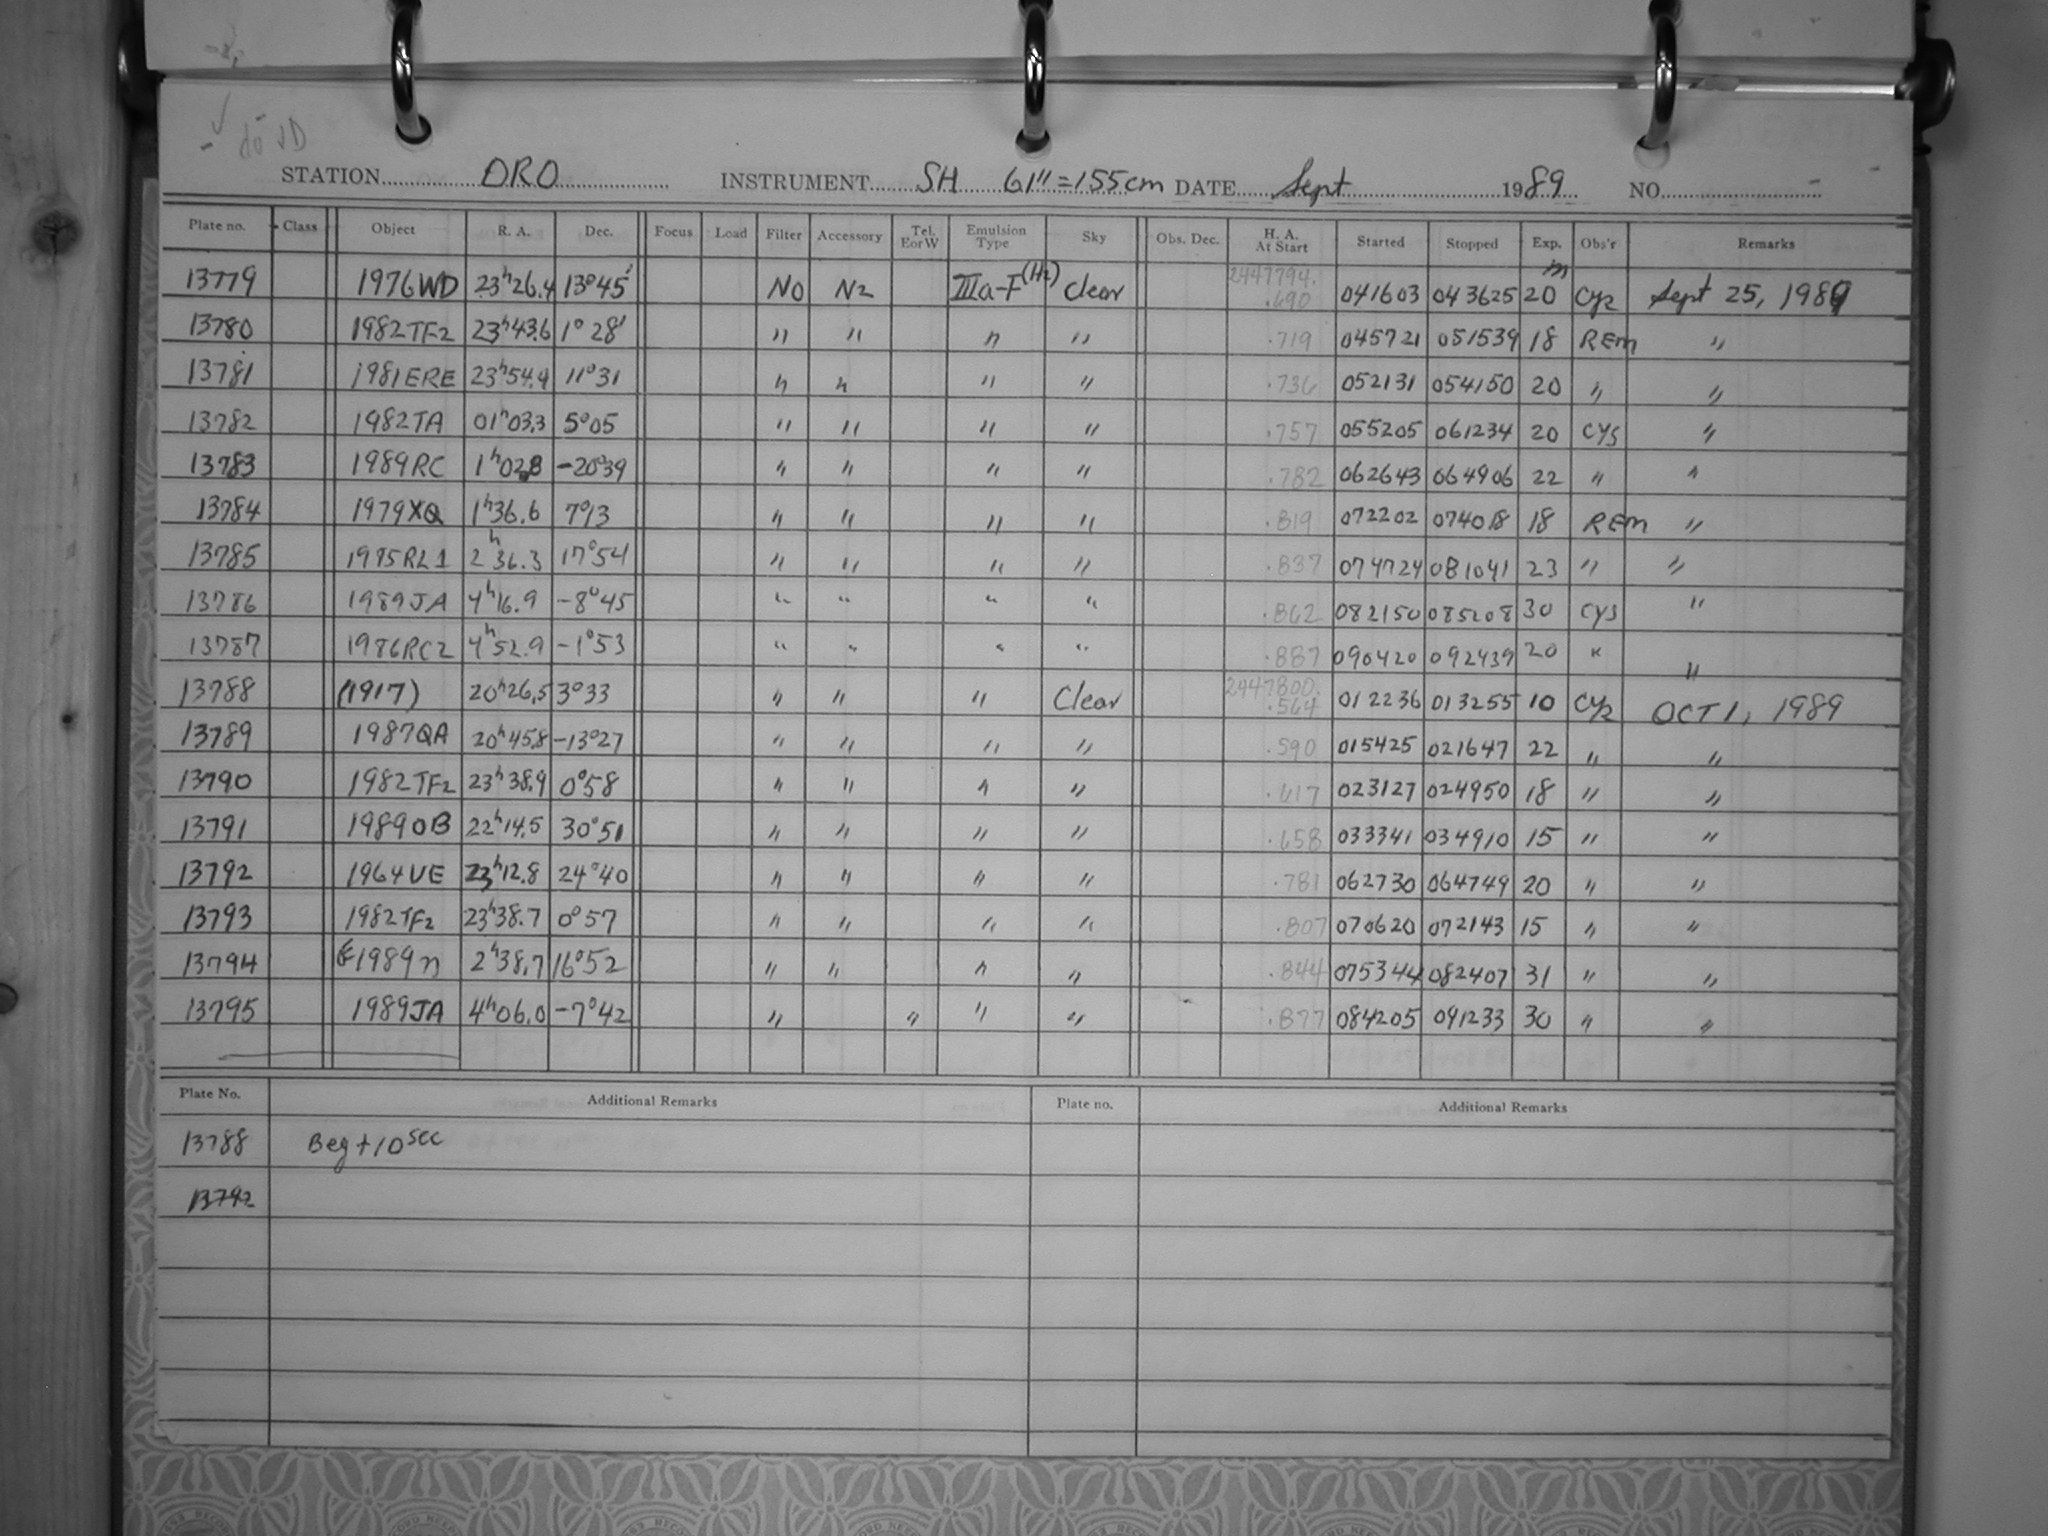 STATION ORO INSTRUMENT SH 61"=155cm DATE Sept 1989 NO. -
Plate no. Class Object R. A. Dec. Focus Load Filter Accessory Tel. E or W Emulsion Type Sky Obs. Dec. H. A. At Start Started Stopped Exp. Obs'r Remarks
13779 1976WD 23h26.4 13°45' NO N2 IIIa-F(H2) Clear 2447794. .690 041603 043625 20m Cyz Sept 25, 1989
13780 1982TF2 23h43.6 1°28' " " " " .719 045721 051539 18 REM "
13781 1981ERE 23h54.9 11°31 " " " " .736 052131 054150 20 " "
13782 1982TA 01h03.3 5°05 " " " " .757 055205 061234 20 CYS "
13783 1989RC 1h02.8 -20°39 " " " " .782 062643 064906 22 " "
13784 1979XQ 1h36.6 7°13 " " " " .819 072202 074018 18 REM "
13785 1985RL1 2h36.3 17°54 " " " " .837 074724 081041 23 " "
13786 1989JA 4h16.9 -8°45 " " " " .862 082150 085208 30 CYS "
13787 1986RC2 4h52.9 -1°53 " " " " .887 090420 092439 20 " "
13788 (1917) 20h26.5 3°33 " " " Clear 2447800. .564 012236 013255 10 Cyz OCT 1, 1989
13789 1987QA 20h45.8 -13°27 " " " " .590 015425 021647 22 " "
13790 1982TF2 23h38.9 0°58 " " " " .617 023127 024950 18 " "
13791 1989OB 22h14.5 30°51 " " " " .658 033341 034910 15 " "
13792 1964UE 23h12.8 24°40 " " " " .781 062730 064749 20 " "
13793 1982TF2 23h38.7 0°57 " " " " .807 070620 072143 15 " "
13794 1989n 2h38.7 16°52 " " " " .844 075344 082407 31 " "
13795 1989JA 4h06.0 -7°42 " " " " .877 084205 091233 30 " "
Plate No. Additional Remarks Plate no. Additional Remarks
13788 Beg + 10sec
13792